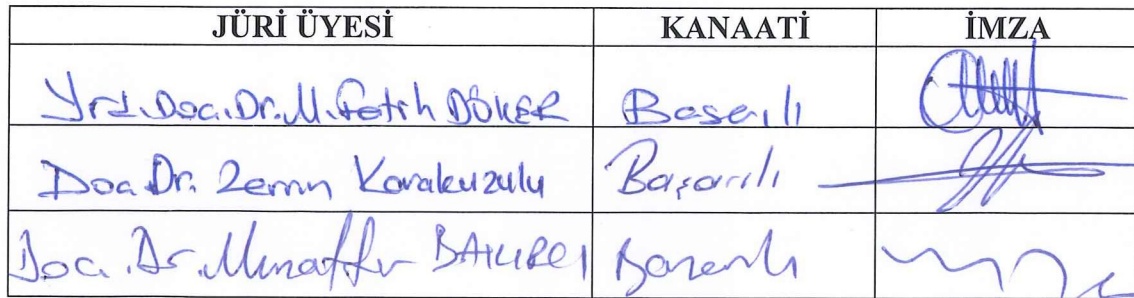 JÜRİ ÜYESİ KANAATİ İMZA
Yrd. Doç. Dr. M. Fatih DÖKER Başarılı
Doç. Dr. Zerrin Karakuzulu Başarılı
Doç. Dr. Muzaffer BAKIRCI Başarılı